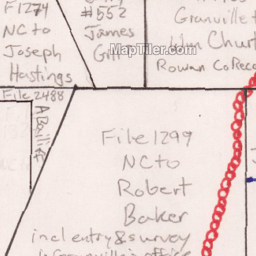 F1274
NC to
Joseph
Hastings
#552
James
Granville
Rowan Co Reco
MapTiler.com
File 2488
A Bailiff
File 1299
NC to
Robert
Baker
incl entry & survey
in Granville's office